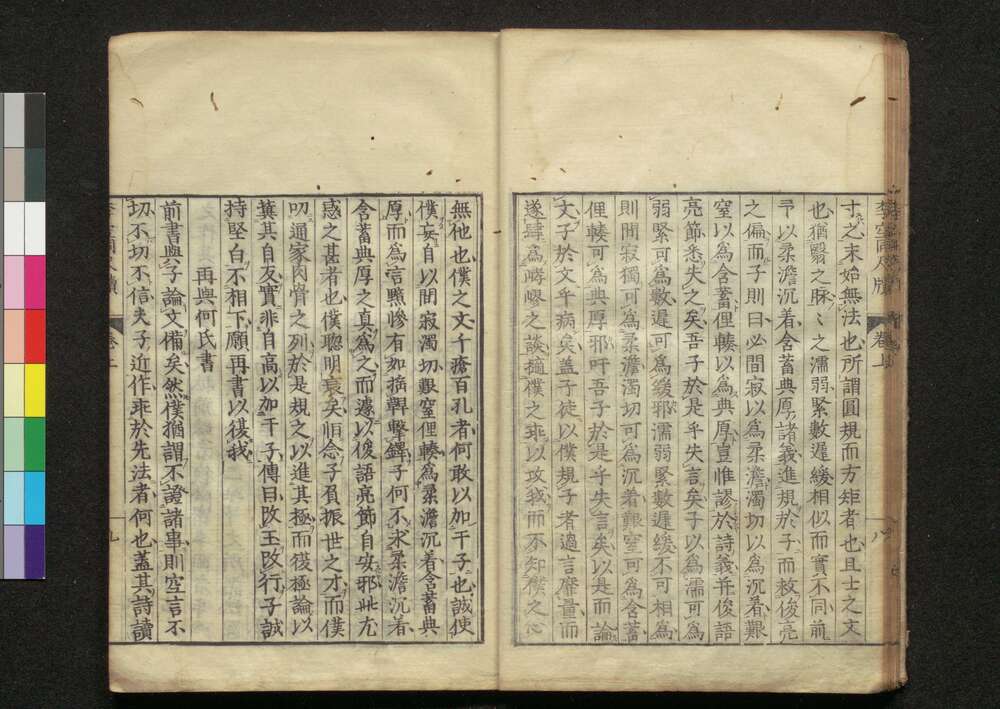 李空同尺牘 卷上 八
寸之末始無法也所謂圓規而方矩者也且士之文
也猶醫之脉〻之濡弱緊數遲緩相似而實不同前
予以柔澹沉着含蓄典厚諸義進規於子而救俊亮
之偏而子則曰必間寂以爲柔澹濁切以爲沉着艱
窒以爲含蓄俚輳以爲典厚豈惟謬於詩義并俊語
亮節悉失之矣吾子於是乎失言矣子以爲濡可爲
弱緊可爲數遲可爲緩邪濡弱緊數遲緩不可相爲
則間寂獨可爲柔澹濁切可爲沉着艱窒可爲含蓄
俚輳可爲典厚邪吁吾子於是乎失言矣以是而論
文子於文乎病矣蓋子徒以僕規子者過言靡量而
遂肆爲嵺嵺之談擿僕之乖以攻我而不知僕之心
無他也僕之文千瘡百孔者何敢以加于子也誠使
僕妄自以間寂濁切艱窒俚輳爲柔澹沉着含蓄典
厚而爲言黯慘有如搖鞞擊鐸子何不求柔澹沉着
含蓄典厚之真爲之而遽以俊語亮節自安邪此尤
惑之甚者也僕聰明衰矣恒念子負振世之才而僕
叨通家肉骨之列於是規之以進其極而復極論以
冀其自反實非自高以加于子傳曰改玉改行子誠
持堅白不相下願再書以復我
再與何氏書
前書與子論文備矣然僕猶謂不證諸事則空言不
切不切不信夫子近作乖於先法者何也蓋其詩讀
卷上 九